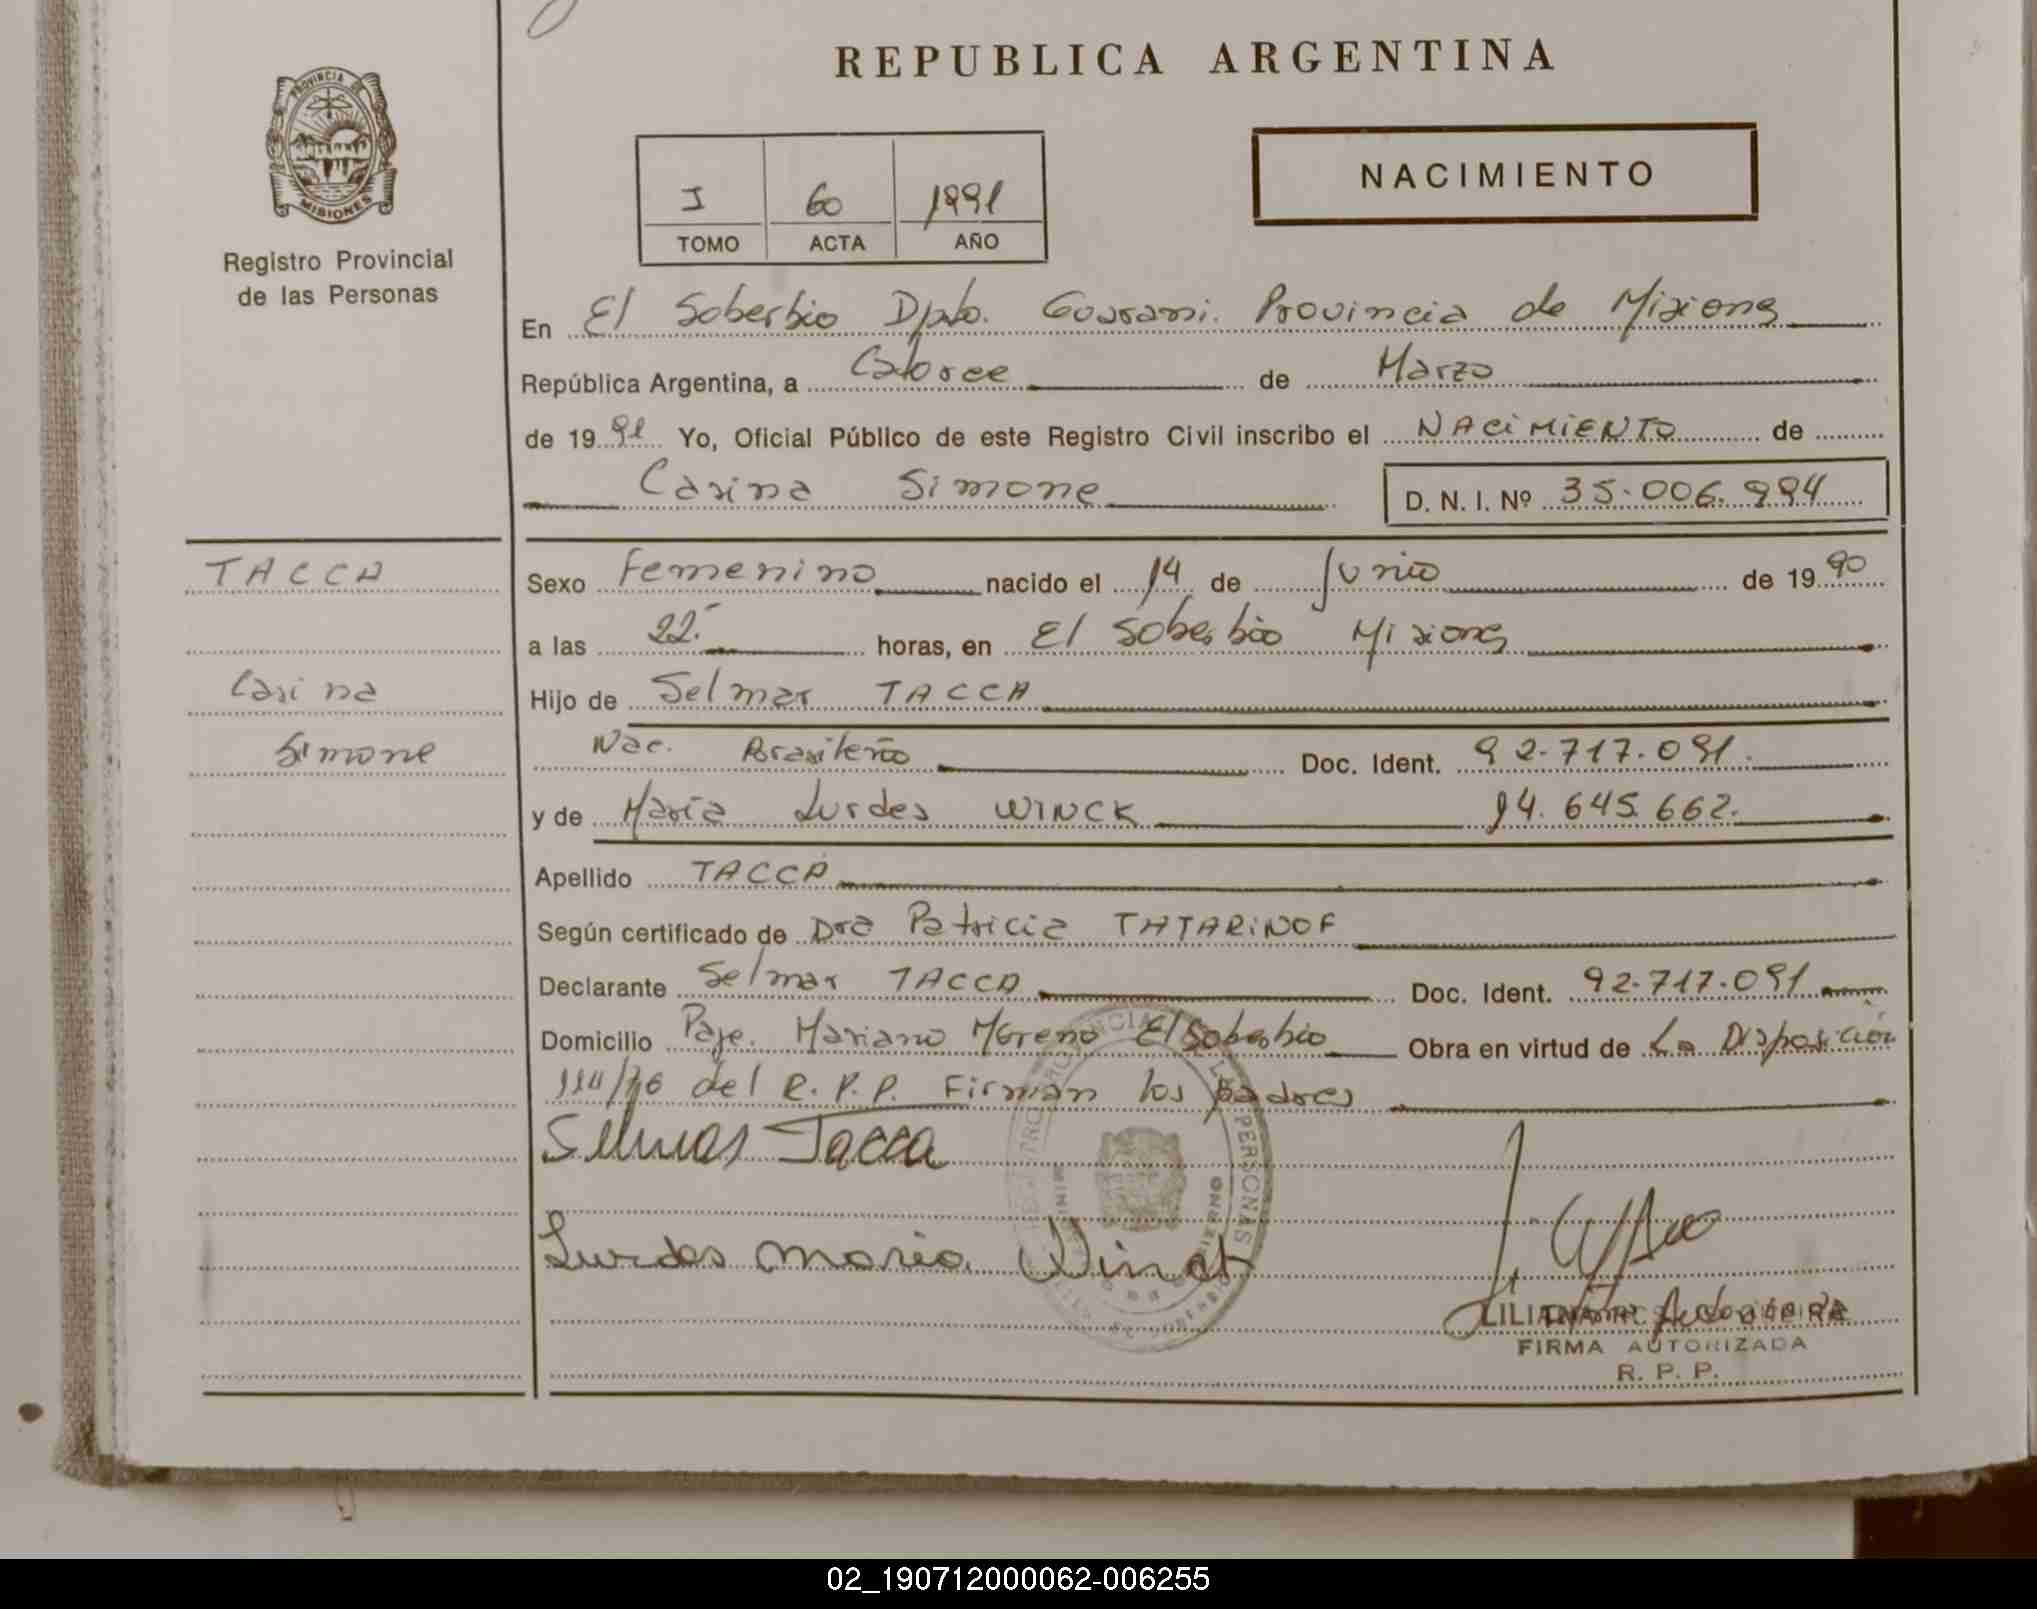 REPUBLICA ARGENTINA
PROVINCIA DE
MISIONES
Registro Provincial
de las Personas
I 60 1991
TOMO ACTA AÑO
NACIMIENTO
En El Soberbio Dpto. Guarani. Provincia de Misiones
República Argentina, a Catorce de Marzo
de 19 91 Yo, Oficial Público de este Registro Civil inscribo el NACIMIENTO de
Carina Simone D. N. I. Nº 35.006.994
TACCA
Carina
Simone
Sexo Femenino nacido el 14 de Junio de 19 90
a las 22.- horas, en El Soberbio Misiones
Hijo de Selmar TACCA
Nac. Brasileño Doc. Ident. 92.717.091.
y de María Lurdes WINCK 14.645.662.
Apellido TACCA
Según certificado de Dra Patricia TATARINOF
Declarante Selmar TACCA Doc. Ident. 92.717.091
Domicilio Paje. Mariano Moreno El Soberbio Obra en virtud de La Disposición
114/76 del R.P.P. Firman los padres
Selmar Tacca
Lurdes Maria Winck
PERSONAS
FIRMA AUTORIZADA
R. P. P.
02_190712000062-006255